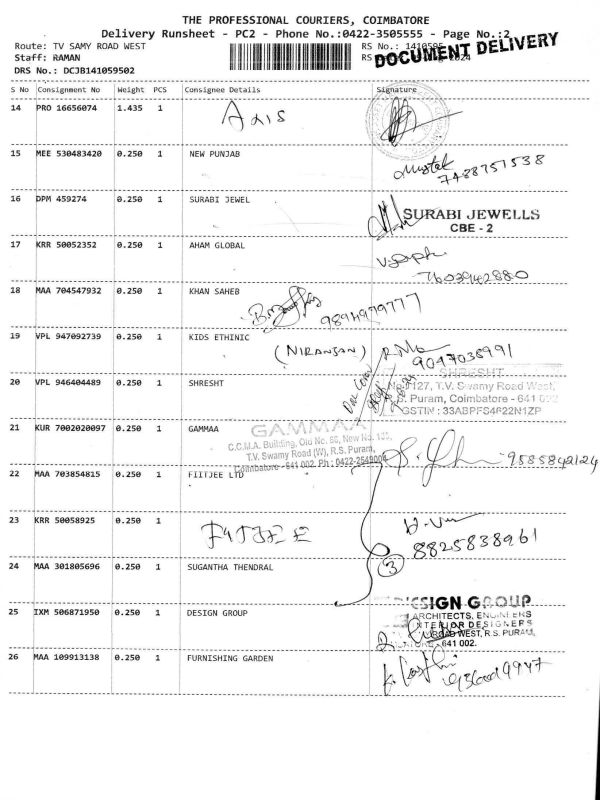 THE PROFESSIONAL COURIERS, COIMBATORE
Delivery Runsheet - PC2 - Phone No.:0422-3505555 - Page No.:2
Route: TV SAMY ROAD WEST
RS No.: 1410595
DOCUMENT DELIVERY
Staff: RAMAN
RS
2024
DRS No.: DCJB141059502
S No Consignment No Weight PCS Consignee Details Signature
14 PRO 16656074 1.435 1 Axis
15 MEE 530483420 0.250 1 NEW PUNJAB
Mustak
7488751538
16 DPM 459274 0.250 1 SURABI JEWEL
SURABI JEWELLS
CBE - 2
17 KRR 50052352 0.250 1 AHAM GLOBAL
7603942880
18 MAA 704547932 0.250 1 KHAN SAHEB
9894979777
19 VPL 947092739 0.250 1 KIDS ETHINIC
(NIRANJAN)
9047038991
20 VPL 946404489 0.250 1 SHRESHT
SHRESHT
No.127, T.V. Swamy Road West,
R.S. Puram, Coimbatore - 641 002
GSTIN : 33ABPFS4622N1ZP
21 KUR 7002020097 0.250 1 GAMMAA
GAMMAA
C.C.M.A. Building, Old No. 66, New No.
T.V. Swamy Road (W), R.S. Puram,
Coimbatore - 641 002. Ph : 0422-2549004
9585842124
22 MAA 703854815 0.250 1 FIITJEE LTD
23 KRR 50058925 0.250 1 FIITJEE
8825838961
24 MAA 301805696 0.250 1 SUGANTHA THENDRAL
3
25 IXM 506871950 0.250 1 DESIGN GROUP
DESIGN GROUP
ARCHITECTS, ENGINEERS
INTERIOR DESIGNERS
ROAD WEST, R.S. PURAM,
641 002.
26 MAA 109913138 0.250 1 FURNISHING GARDEN